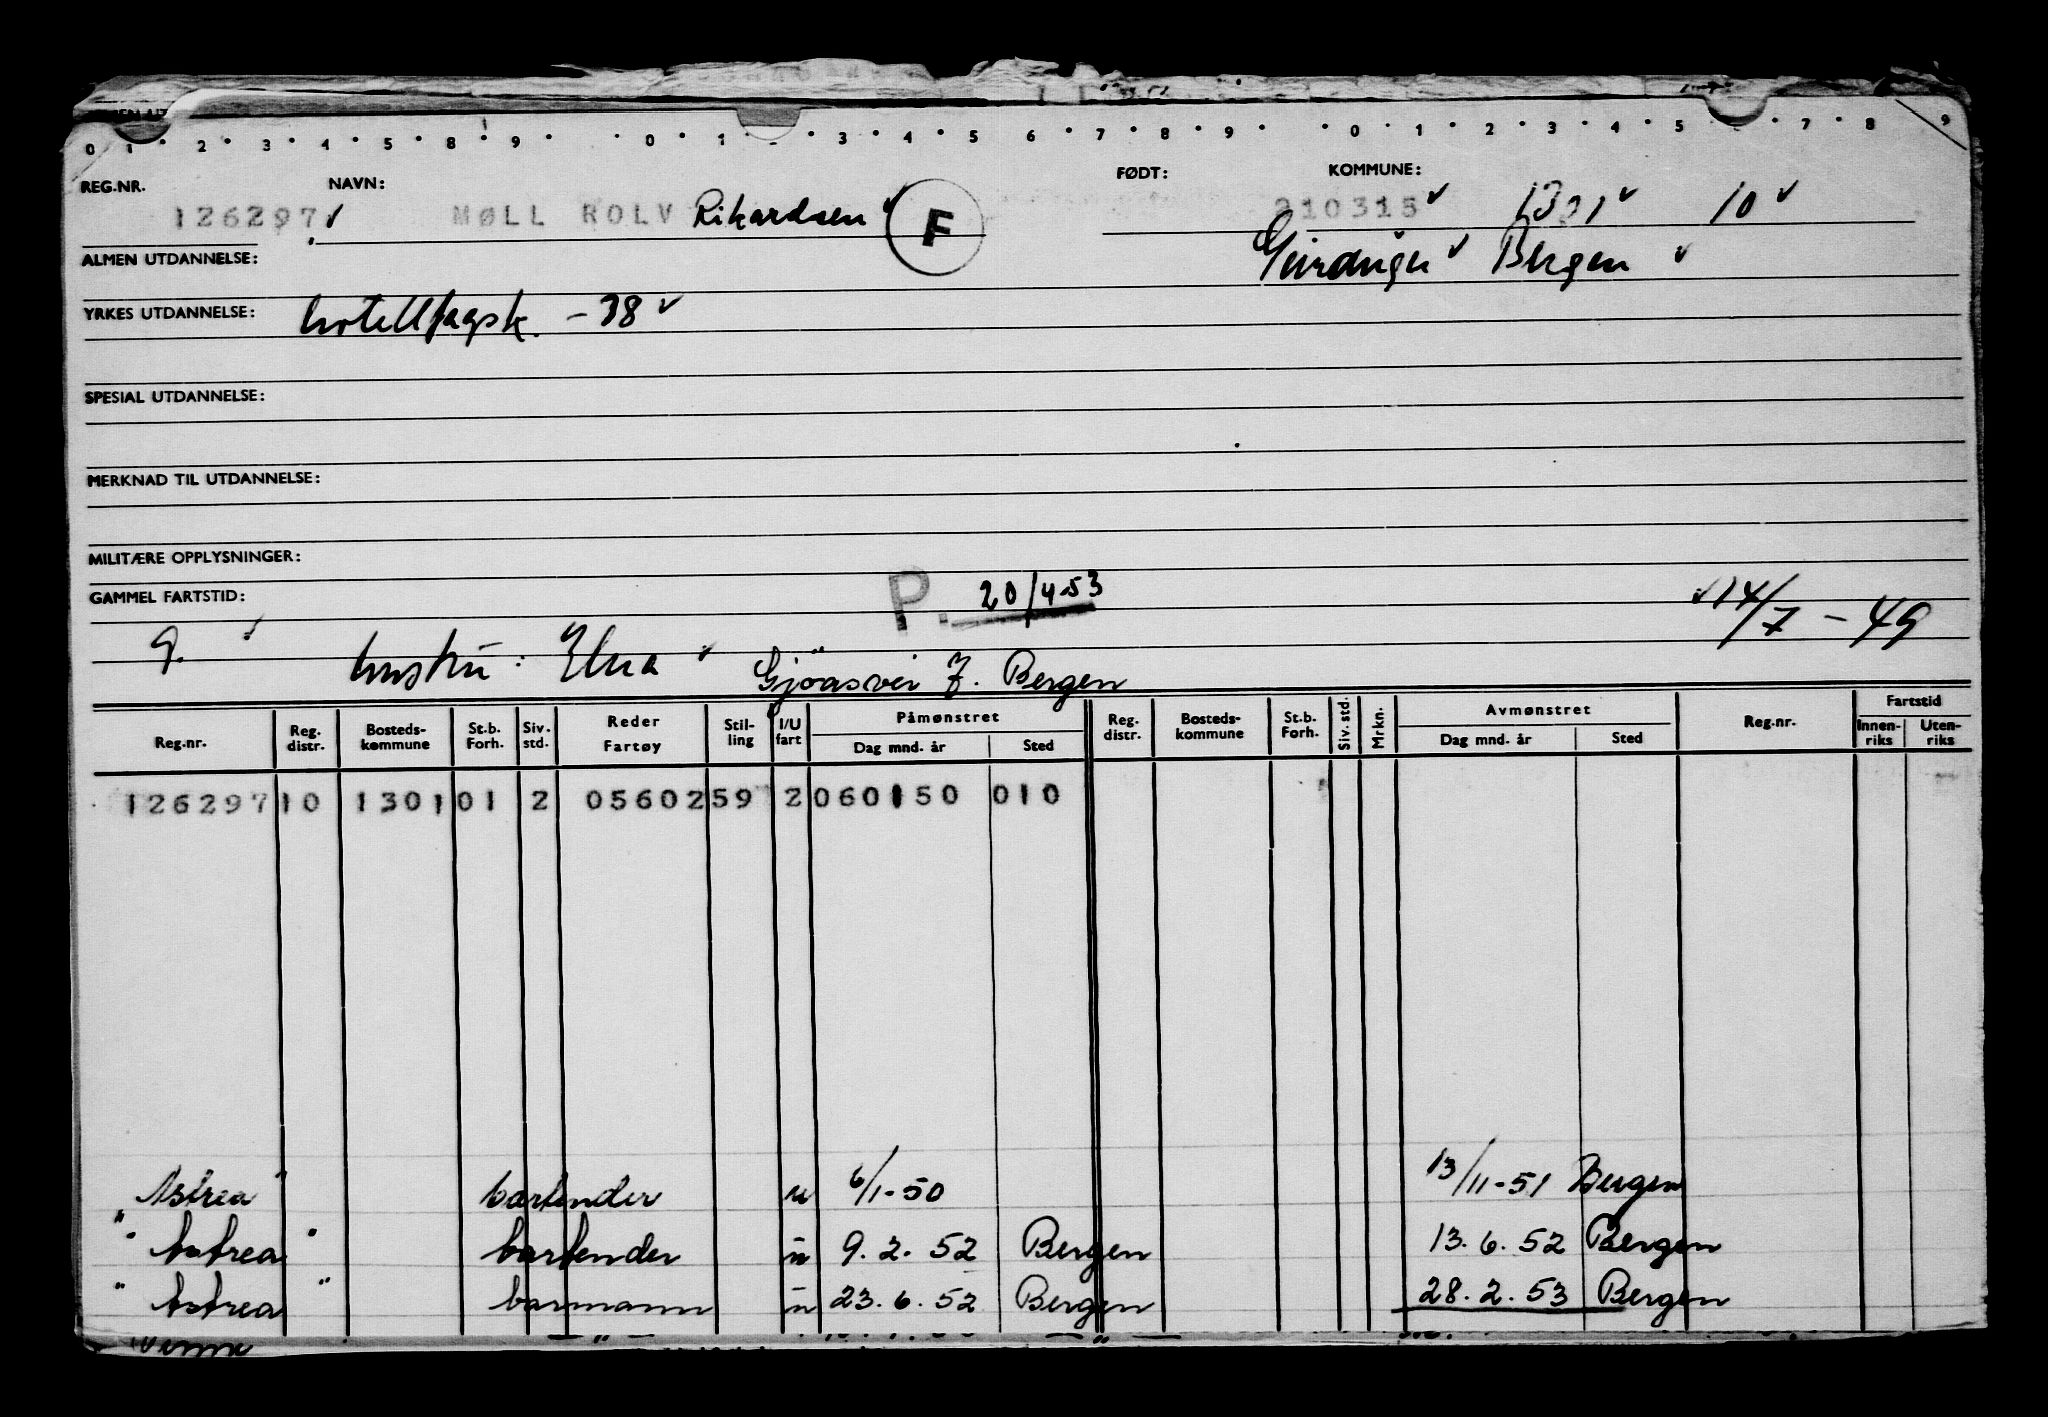 0 1 2 3 4 5 8 9 0 1 3 4 5 6 7 8 9 0 1 2 3 4 5 7 8 9
REG.NR. NAVN: FØDT: KOMMUNE:
126297 MØLL ROLV Rikardsen F 210315 1301 10
ALMEN UTDANNELSE: Bergen
YRKES UTDANNELSE: hotellfagsk. - 38
SPESIAL UTDANNELSE:
MERKNAD TIL UTDANNELSE:
MILITÆRE OPPLYSNINGER:
GAMMEL FARTSTID: P. 20/4-53 14/7-49
g. hustru: Elna Bergen
Reg.nr. Reg. distr. Bosteds-kommune St.b. Forh. Siv. std. Reder Fartøy Stil-ling I/U fart Påmønstret Dag mnd. år Sted Reg. distr. Bosteds-kommune St.b. Forh. Siv. std. Mrkn. Avmønstret Dag mnd. år Sted Reg.nr. Fartstid Innen-riks Uten-riks
126297 10 1301 01 2 05602 59 2 060150 010
"Astrea" bartender u 6/1-50 13/11-51 Bergen
"Astrea" bartender u 9.2.52 Bergen 13.6.52 Bergen
"Astrea" barmann u 23.6.52 Bergen 28.2.53 Bergen